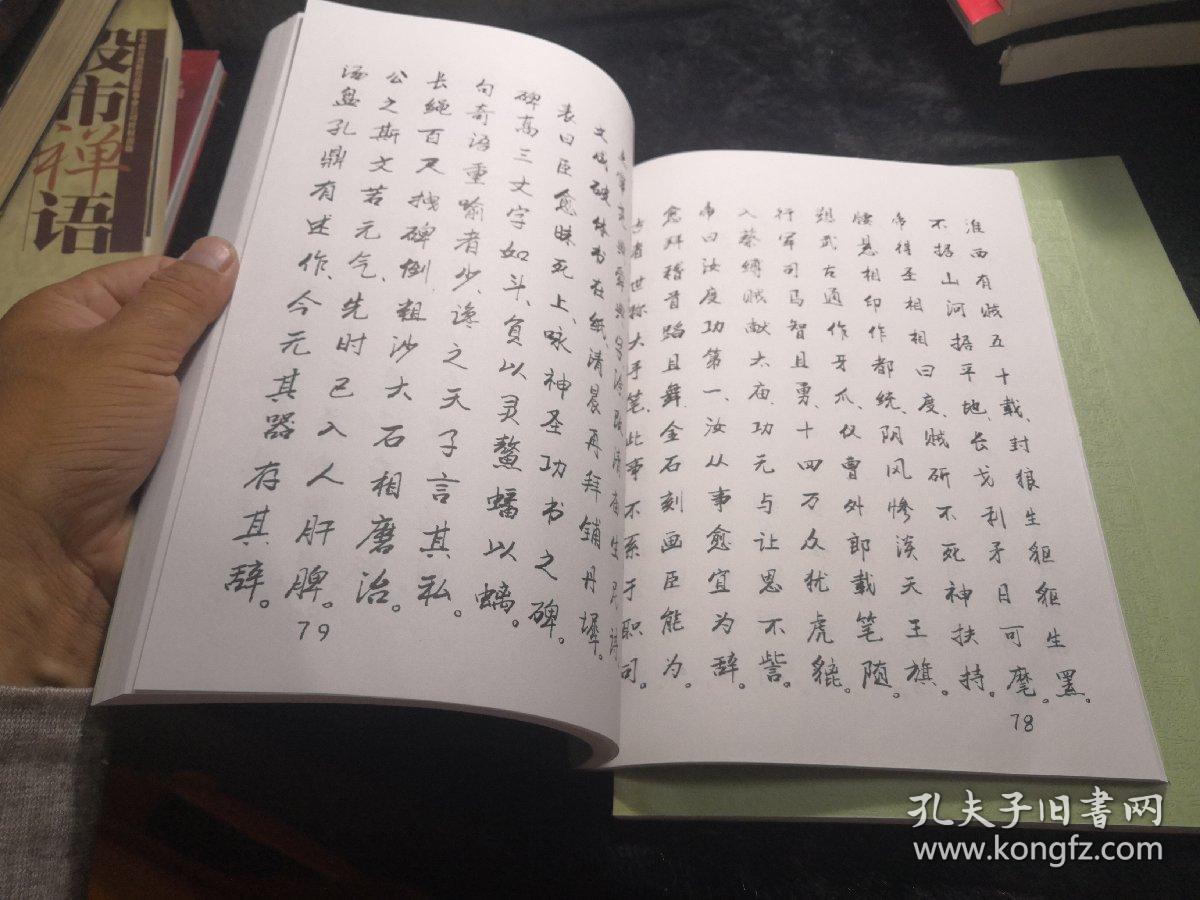 股市禅语
淮西有贼五十载、封狼生貙貙生罴。
不据山河据平地、长戈利矛日可麾。
帝得圣相相曰度、贼斫不死神扶持。
腰悬相印作都统、阴风惨淡天王旗。
愬武古通作牙爪、仪曹外郎载笔随。
行军司马智且勇、十四万众犹虎貔。
入蔡缚贼献太庙、功无与让恩不訾。
帝曰汝度功第一、汝从事愈宜为辞。
愈拜稽首蹈且舞、金石刻画臣能为。
古者世称大手笔、此事不系于职司。
78
文成破体书在纸、清晨再拜铺丹墀。
表曰臣愈昧死上、咏神圣功书之碑。
碑高三丈字如斗、负以灵鳌蟠以螭。
句奇语重喻者少、谗之天子言其私。
长绳百尺拽碑倒、粗沙大石相磨治。
公之斯文若元气、先时已入人肝脾。
汤盘孔鼎有述作、今无其器存其辞。
79
孔夫子旧书网
www.kongfz.com